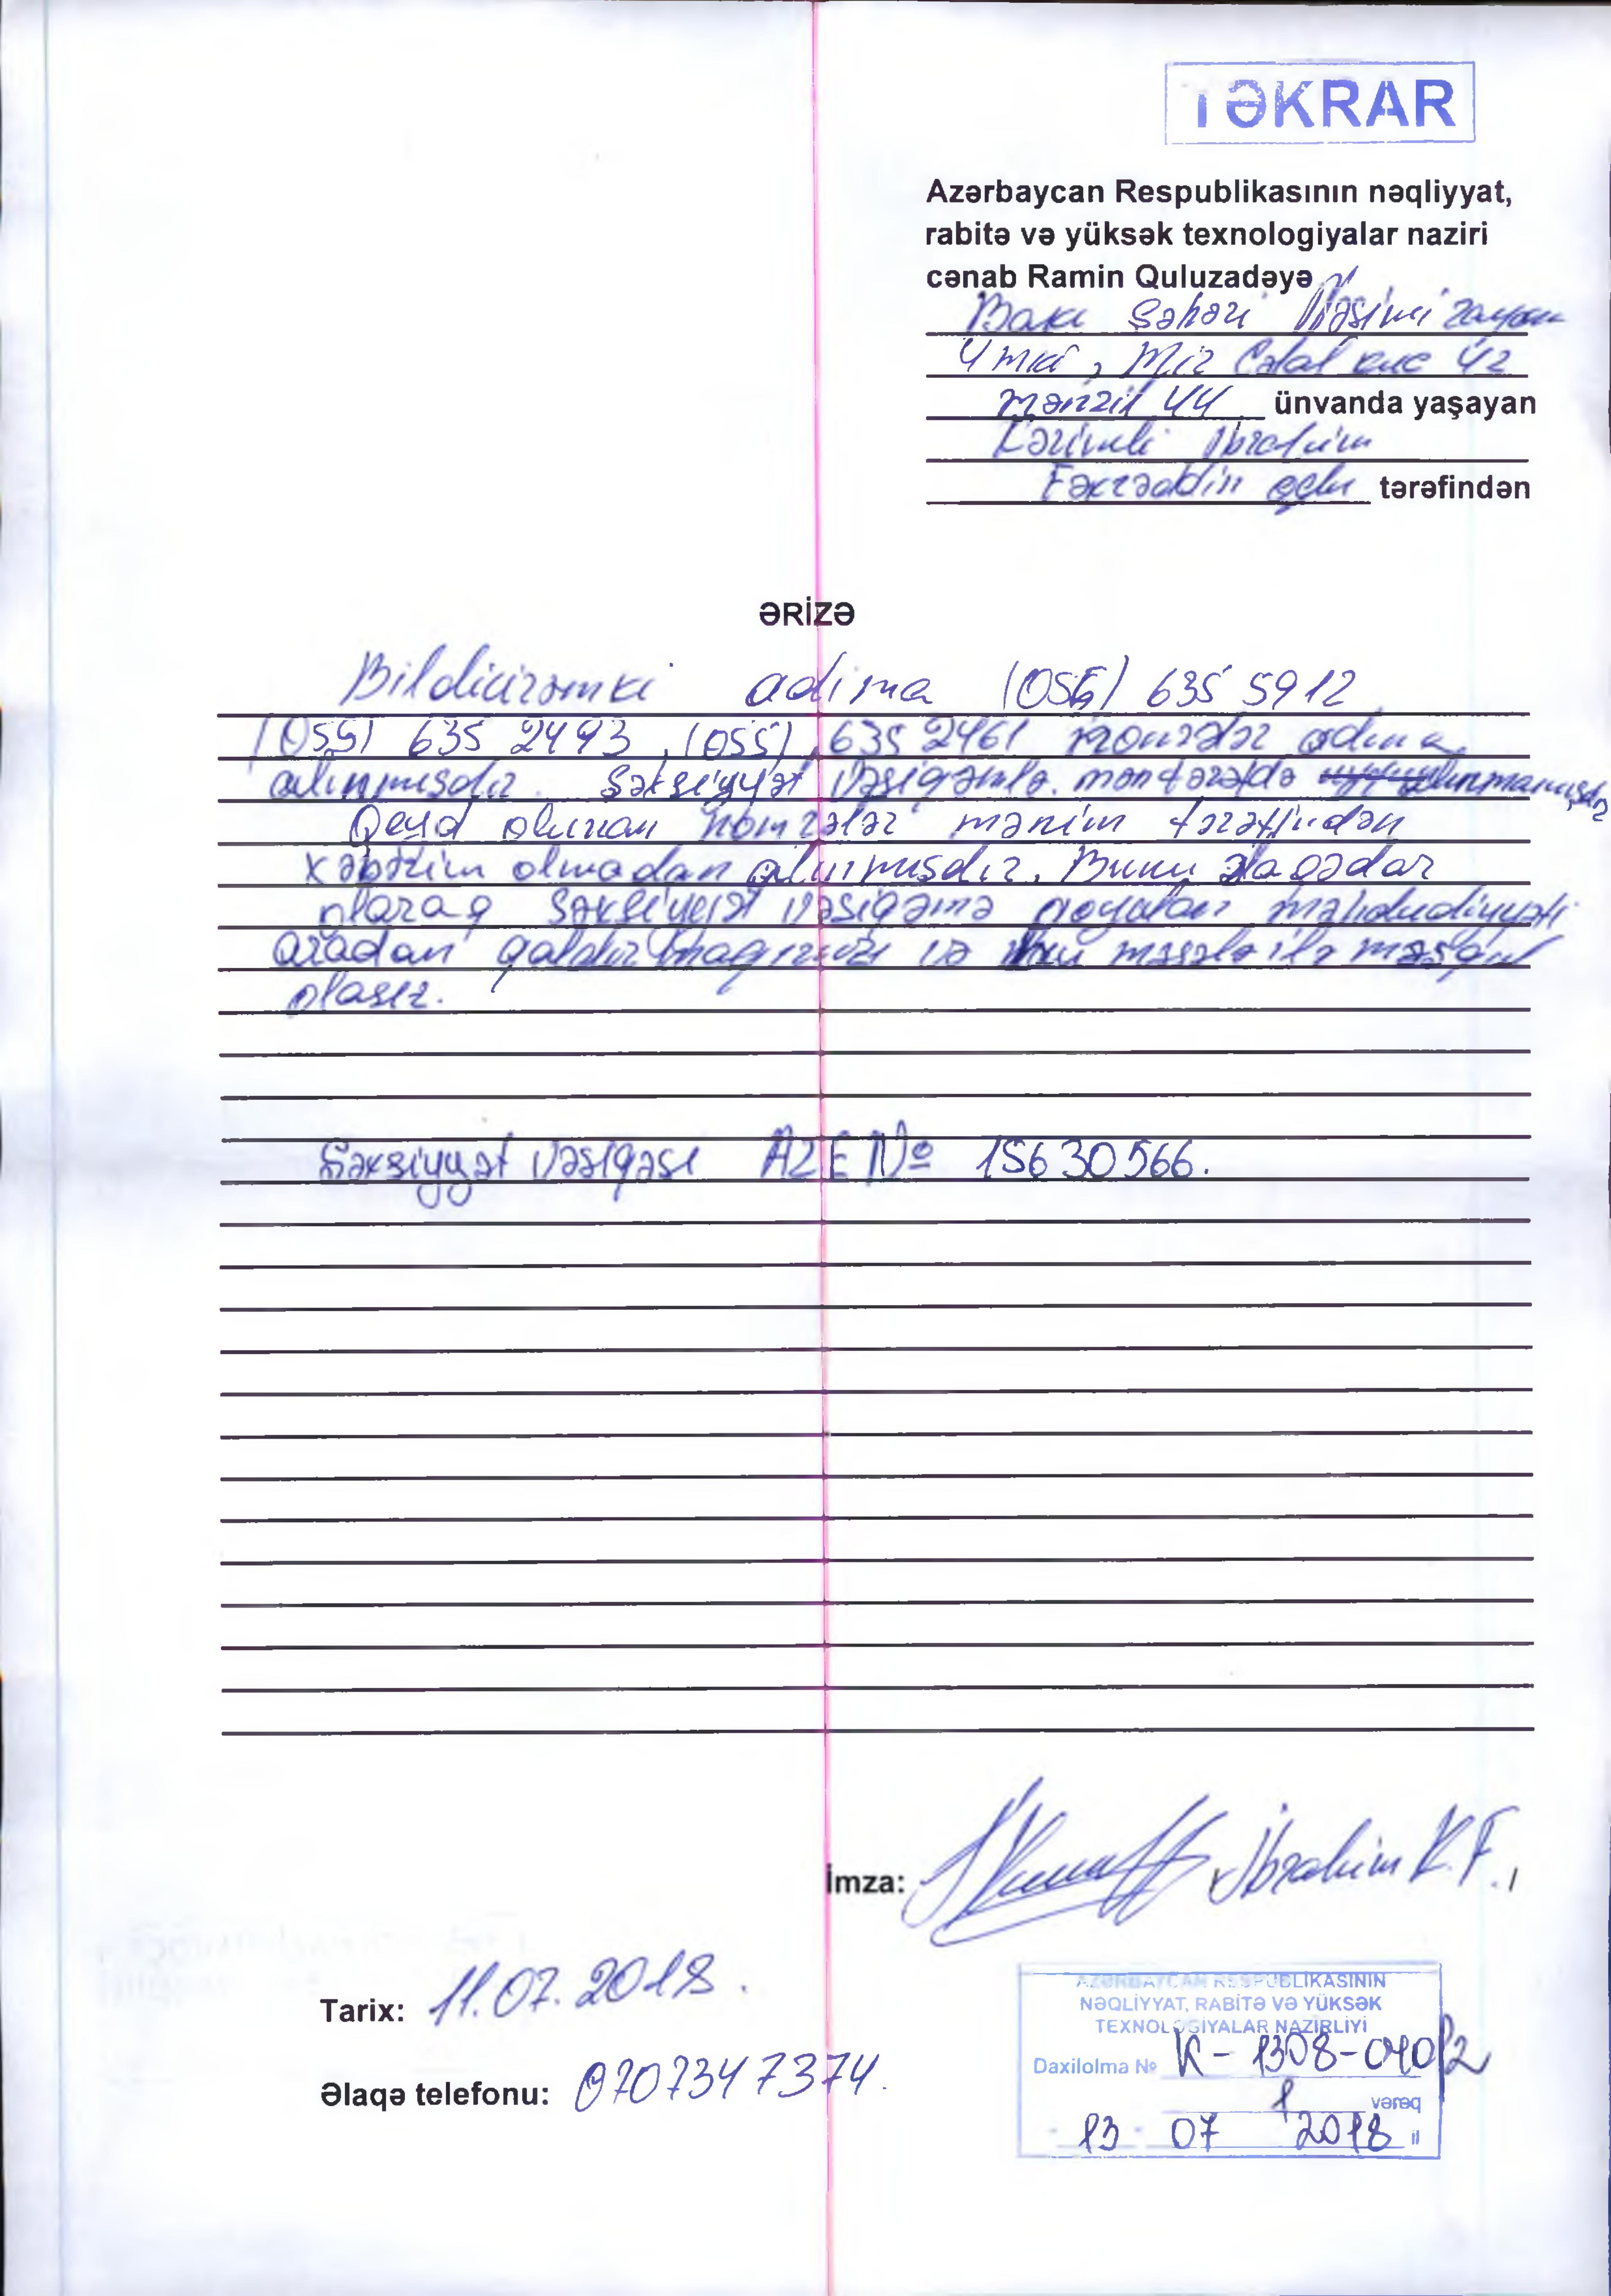 TƏKRAR
Azərbaycan Respublikasının nəqliyyat,
rabitə və yüksək texnologiyalar naziri
cənab Ramin Quluzadəyə
Bakı Şəhəri Nəsimi rayon
4 mkr, Mir Cəlal küç 42
mənzil 44 ünvanda yaşayan
Kərimli Ibrahim
Fəxrəddin oğlu tərəfindən
ƏRİZƏ
Bildirirəmki adıma (055) 635 5912
(055) 635 2493, (055) 635 2461 nömrələr adıma
alınmışdır. Şəxsiyyət vəsiqəmlə. mən tərəfdə alınmamışdır
Qeyd olunan nömrələr mənim tərəfindən
xəbərim olmadan alınmışdır. Bunu əlaqədar
olaraq şəxsiyyət vəsiqəmə qoyulan məhdudiyyəti
aradan qaldırmağınızı və bu məsələ ilə məşğul
olasız.
Şəxsiyyət vəsiqəsi AZE № 15630566.
İmza: Ibrahim K.F.
Tarix: 11.07.2018.
Əlaqə telefonu: 0707347374.
AZƏRBAYCAN RESPUBLİKASININ
NƏQLİYYAT, RABİTƏ VƏ YÜKSƏK
TEXNOLOGİYALAR NAZİRLİYİ
Daxilolma № K-1308-040/2
1 vərəq
13 07 2018 il